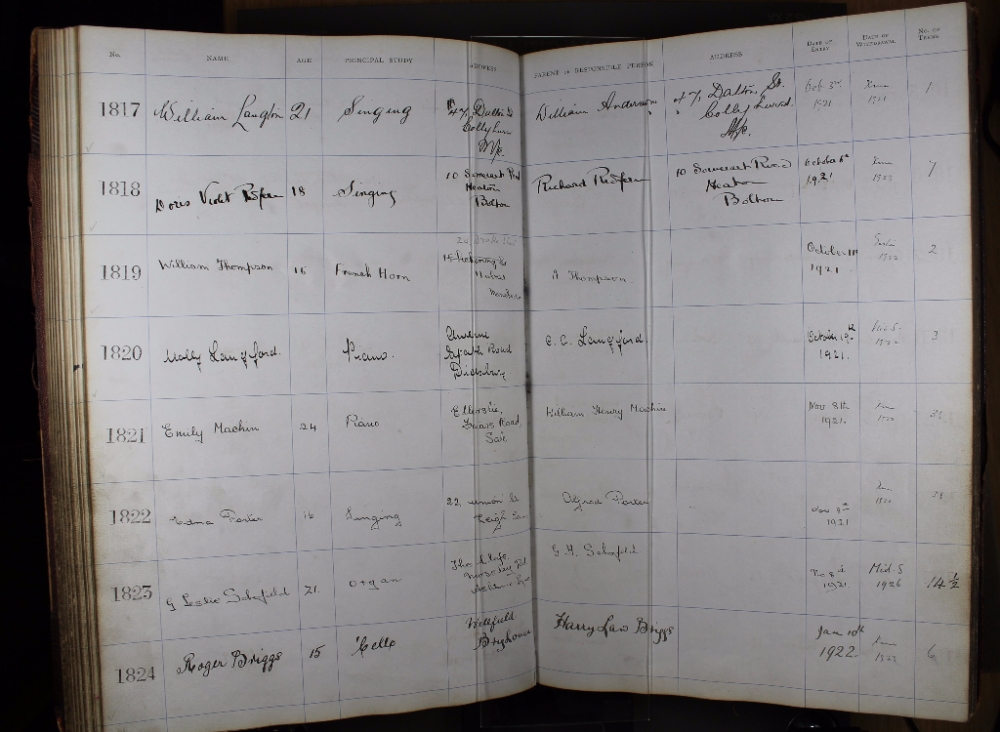 No. NAME AGE PRINCIPAL STUDY ADDRESS PARENT or RESPONSIBLE PERSON ADDRESS DATE OF ENTRY DATE OF WITHDRAWAL No. OF TERMS
1817 William Langton 21 Singing 47, Dalton St William Anderson 47, Dalton St. Oct. 3rd Xmas 1
Collyhurst Collyhurst 1921 1921
M/c. M/c.
1818 Doris Violet Redfern 18 Singing 10 Somerset Rd Richard Redfern 10 Somerset Road October 6th 7
Heaton Heaton 1921
Bolton Bolton
1819 William Thompson 16 French Horn A Thompson October 11th 2
1921
1820 Molly Langford. Piano. E. C. Langford. October 19th 3
Road 1921.
Didsbury
1821 Emily Machin 24 Piano Ellerslie, William Henry Machin Nov 8th
Friars Road, 1921.
Sale
1822 Edna Porter 16 Singing 22, Union St Porter Nov
Leigh 1921
1823 G Leslie Schofield 21 Organ G. H. Schofield Mid. S 14½
1921 1926
1824 Roger Briggs 15 'Cello Wellfield Harry Law Briggs Jan 10th 6
Brighouse 1922.